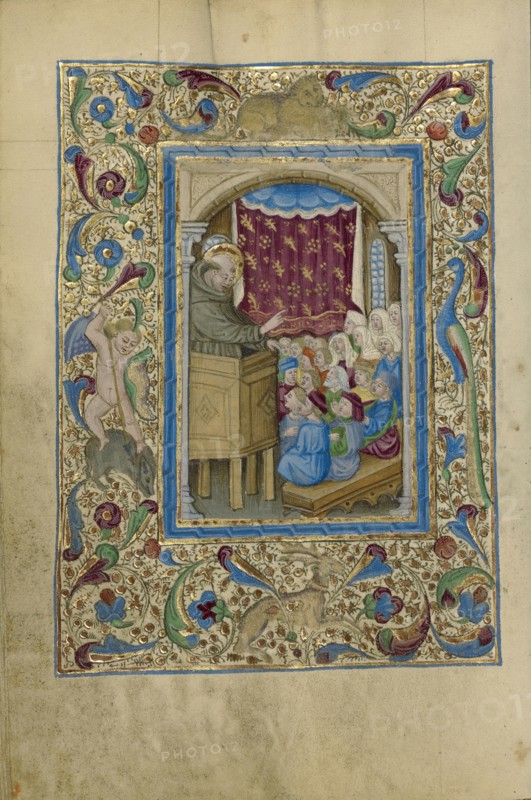 PHOTO12
PHOTO12
PHOTO12
PHOTO12